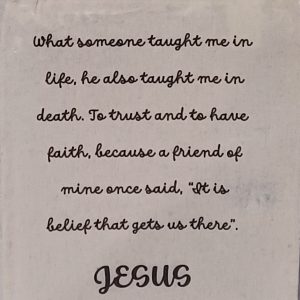 What someone taught me in
life, he also taught me in
death. To trust and to have
faith, because a friend of
mine once said, "It is
belief that gets us there".
JESUS